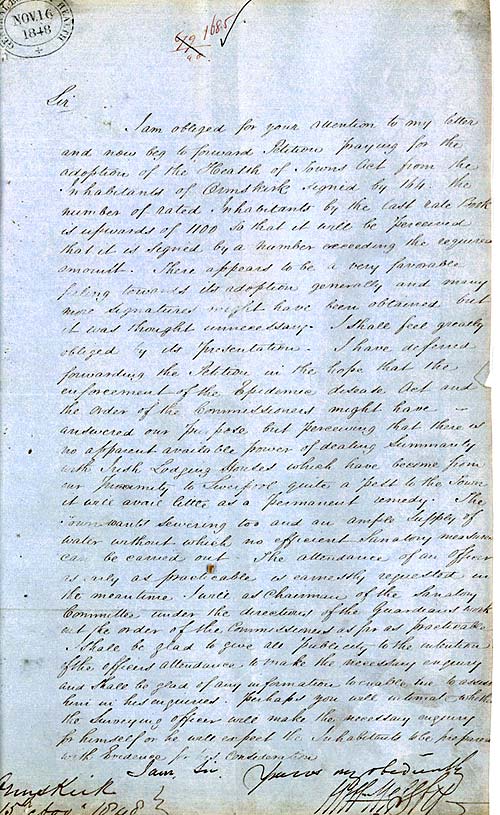 GENERAL BOARD OF HEALTH
NOV. 16
1848
1685
Sir
I am obliged for your attention to my letter
and now beg to forward Petition praying for the
adoption of the Health of Towns Act from the
Inhabitants of Ormskirk signed by 164 the
number of rated Inhabitants by the last rate Book
is upwards of 1100 so that it will be perceived
that it is signed by a number exceeding the required
amount. There appears to be a very favorable
feeling towards its adoption generally and many
more signatures might have been obtained but
it was thought unnecessary. I shall feel greatly
obliged by its Presentation. I have deferred
forwarding the Petition in the hope that the
enforcement of the Epidemic disease Act and
the order of the Commissioners might have
answered our purpose but perceiving that there is
no apparent available power of dealing summarily
with Irish Lodging Houses which have become from
our Proximity to Liverpool quite a Pest to the Town
it will avail little as a Permanent remedy. The
Town wants sewering too and an ample supply of
water without which no efficient Sanatory measures
can be carried out. The attendance of an officer
as early as practicable is earnestly requested in
the meantime I will as Chairman of the Sanatory
Committee under the directions of the Guardians work
out the order of the Commissioners as far as practicable
I shall be glad to give all Publicity to the intention
of the officers attendance to make the necessary enquiry
and shall be glad of any information to enable me to assist
him in his enquiries. Perhaps you will intimate whether
the surveying officer will make the necessary enquiry
for himself or he will expect the Inhabitants to be prepared
with Evidence for his Consideration
I am, Sir, Yours very obediently
Ormskirk
15th Nov. 1848